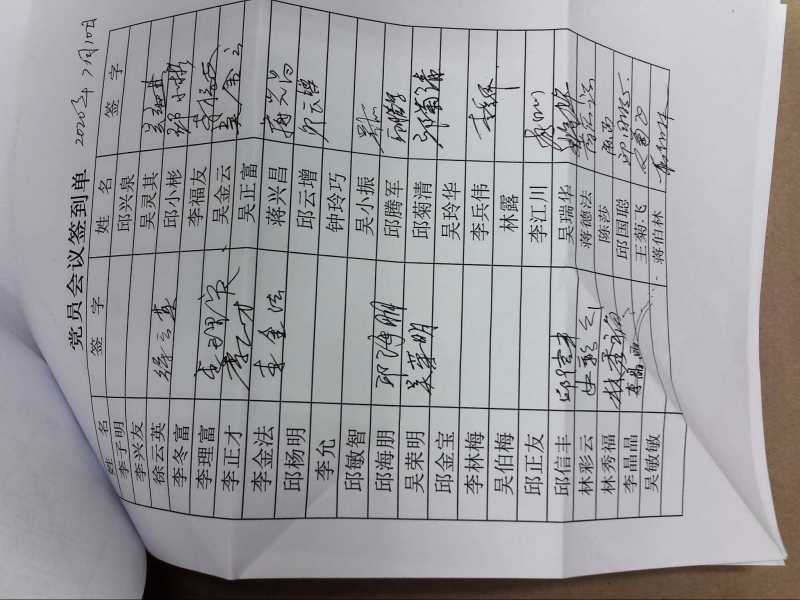 党员会议签到单
2020年7月10日
姓名 签字 姓名 签字
李子明 邱兴泉
李兴友 吴灵其 吴灵其
徐云英 徐云英 邱小彬 邱小彬
李冬富 李福友 李福友
李理富 吴金云 吴金云
李正才 李正才 吴正富
李金法 李金法 蒋兴昌 蒋兴昌
邱杨明 邱云增 邱云增
李允 钟玲巧
邱敏智 吴小振
邱海朋 邱海朋 邱腾军 邱腾军
吴荣明 吴荣明 邱菊清 邱菊清
邱金宝 吴玲华
李林梅 李兵伟
吴伯梅 林露
邱正友 李江川
邱信丰 邱信丰 吴瑞华
林彩云 蒋德法
林秀福 林秀福 陈莎
李晶晶 李晶晶 邱国聪
吴敏敏 王菊飞
蒋伯林